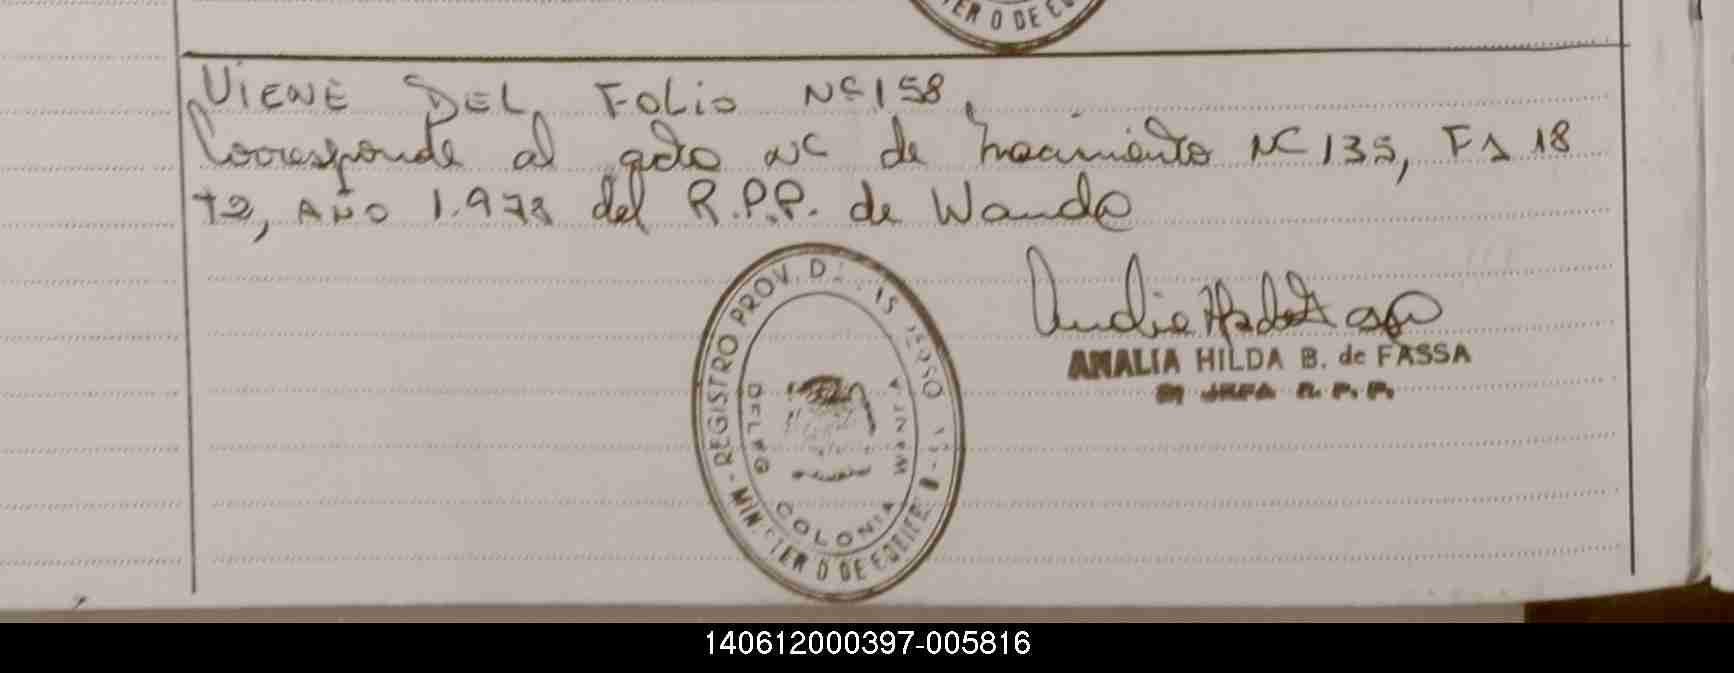 TER O DE EC
VIENE DEL FOLIO Nº 158,
Corresponde al acto Nº de nacimiento Nº 135, Fs 18
T2, AÑO 1.978 del R.P.P. de Wanda
REGISTRO PROV. D
DELEG
COLONIA WANDA
MINISTER O DE
AMALIA HILDA B. de FASSA
JEFA R. P. P.
140612000397-005816